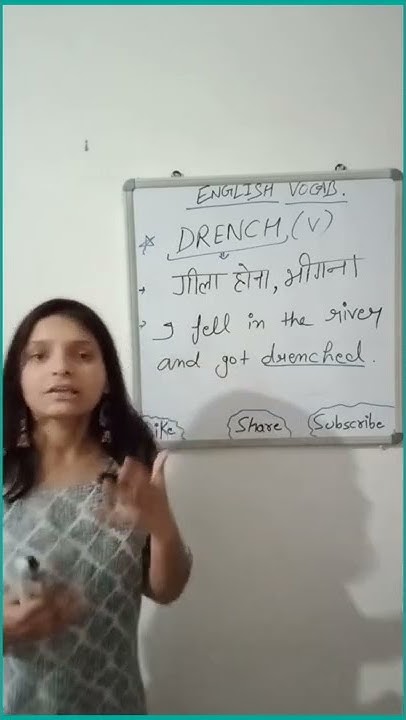 ENGLISH VOCAB.
DRENCH, (V)
गीला होना, भीगना
I fell in the river
and got drenched.
ike Share Subscribe